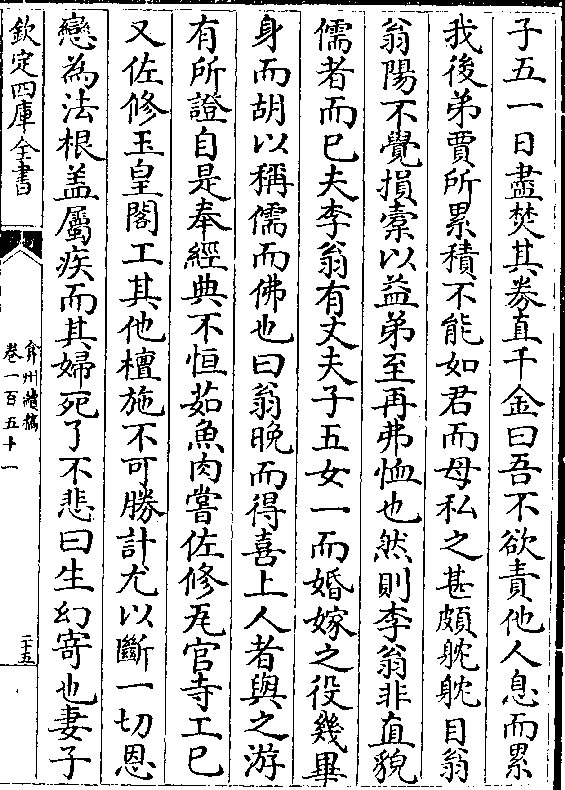 子五一日盡焚其券直千金曰吾不欲責他人息而累
我後弟賈所累積不能如君而母私之甚頗眈眈目翁
翁陽不覺損橐以益弟至再弗恤也然則李翁非直貌
儒者而已夫李翁有丈夫子五女一而婚嫁之役幾畢
身而胡以稱儒而佛也曰翁晚而得喜上人者與之游
有所證自是奉經典不恒茹魚肉嘗佐修瓦官寺工已
又佐修玉皇閣工其他檀施不可勝計尤以斷一切恩
戀為法根盖屬疾而其婦死了不悲曰生幻寄也妻子
欽定四庫全書
弇州續稿
卷一百五十一
二十五